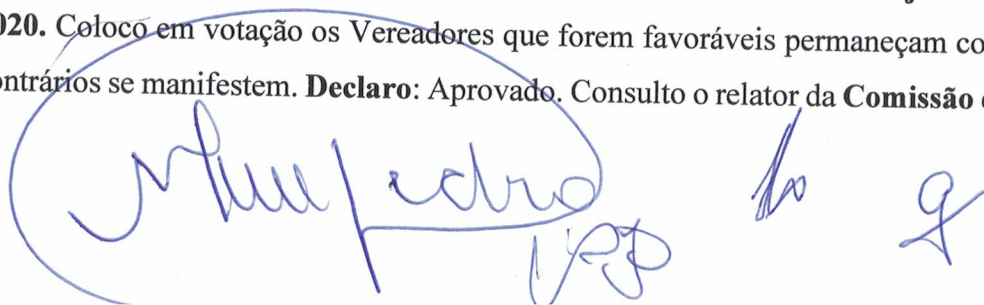 020. Coloco em votação os Vereadores que forem favoráveis permaneçam co
ontrários se manifestem. Declaro: Aprovado. Consulto o relator da Comissão